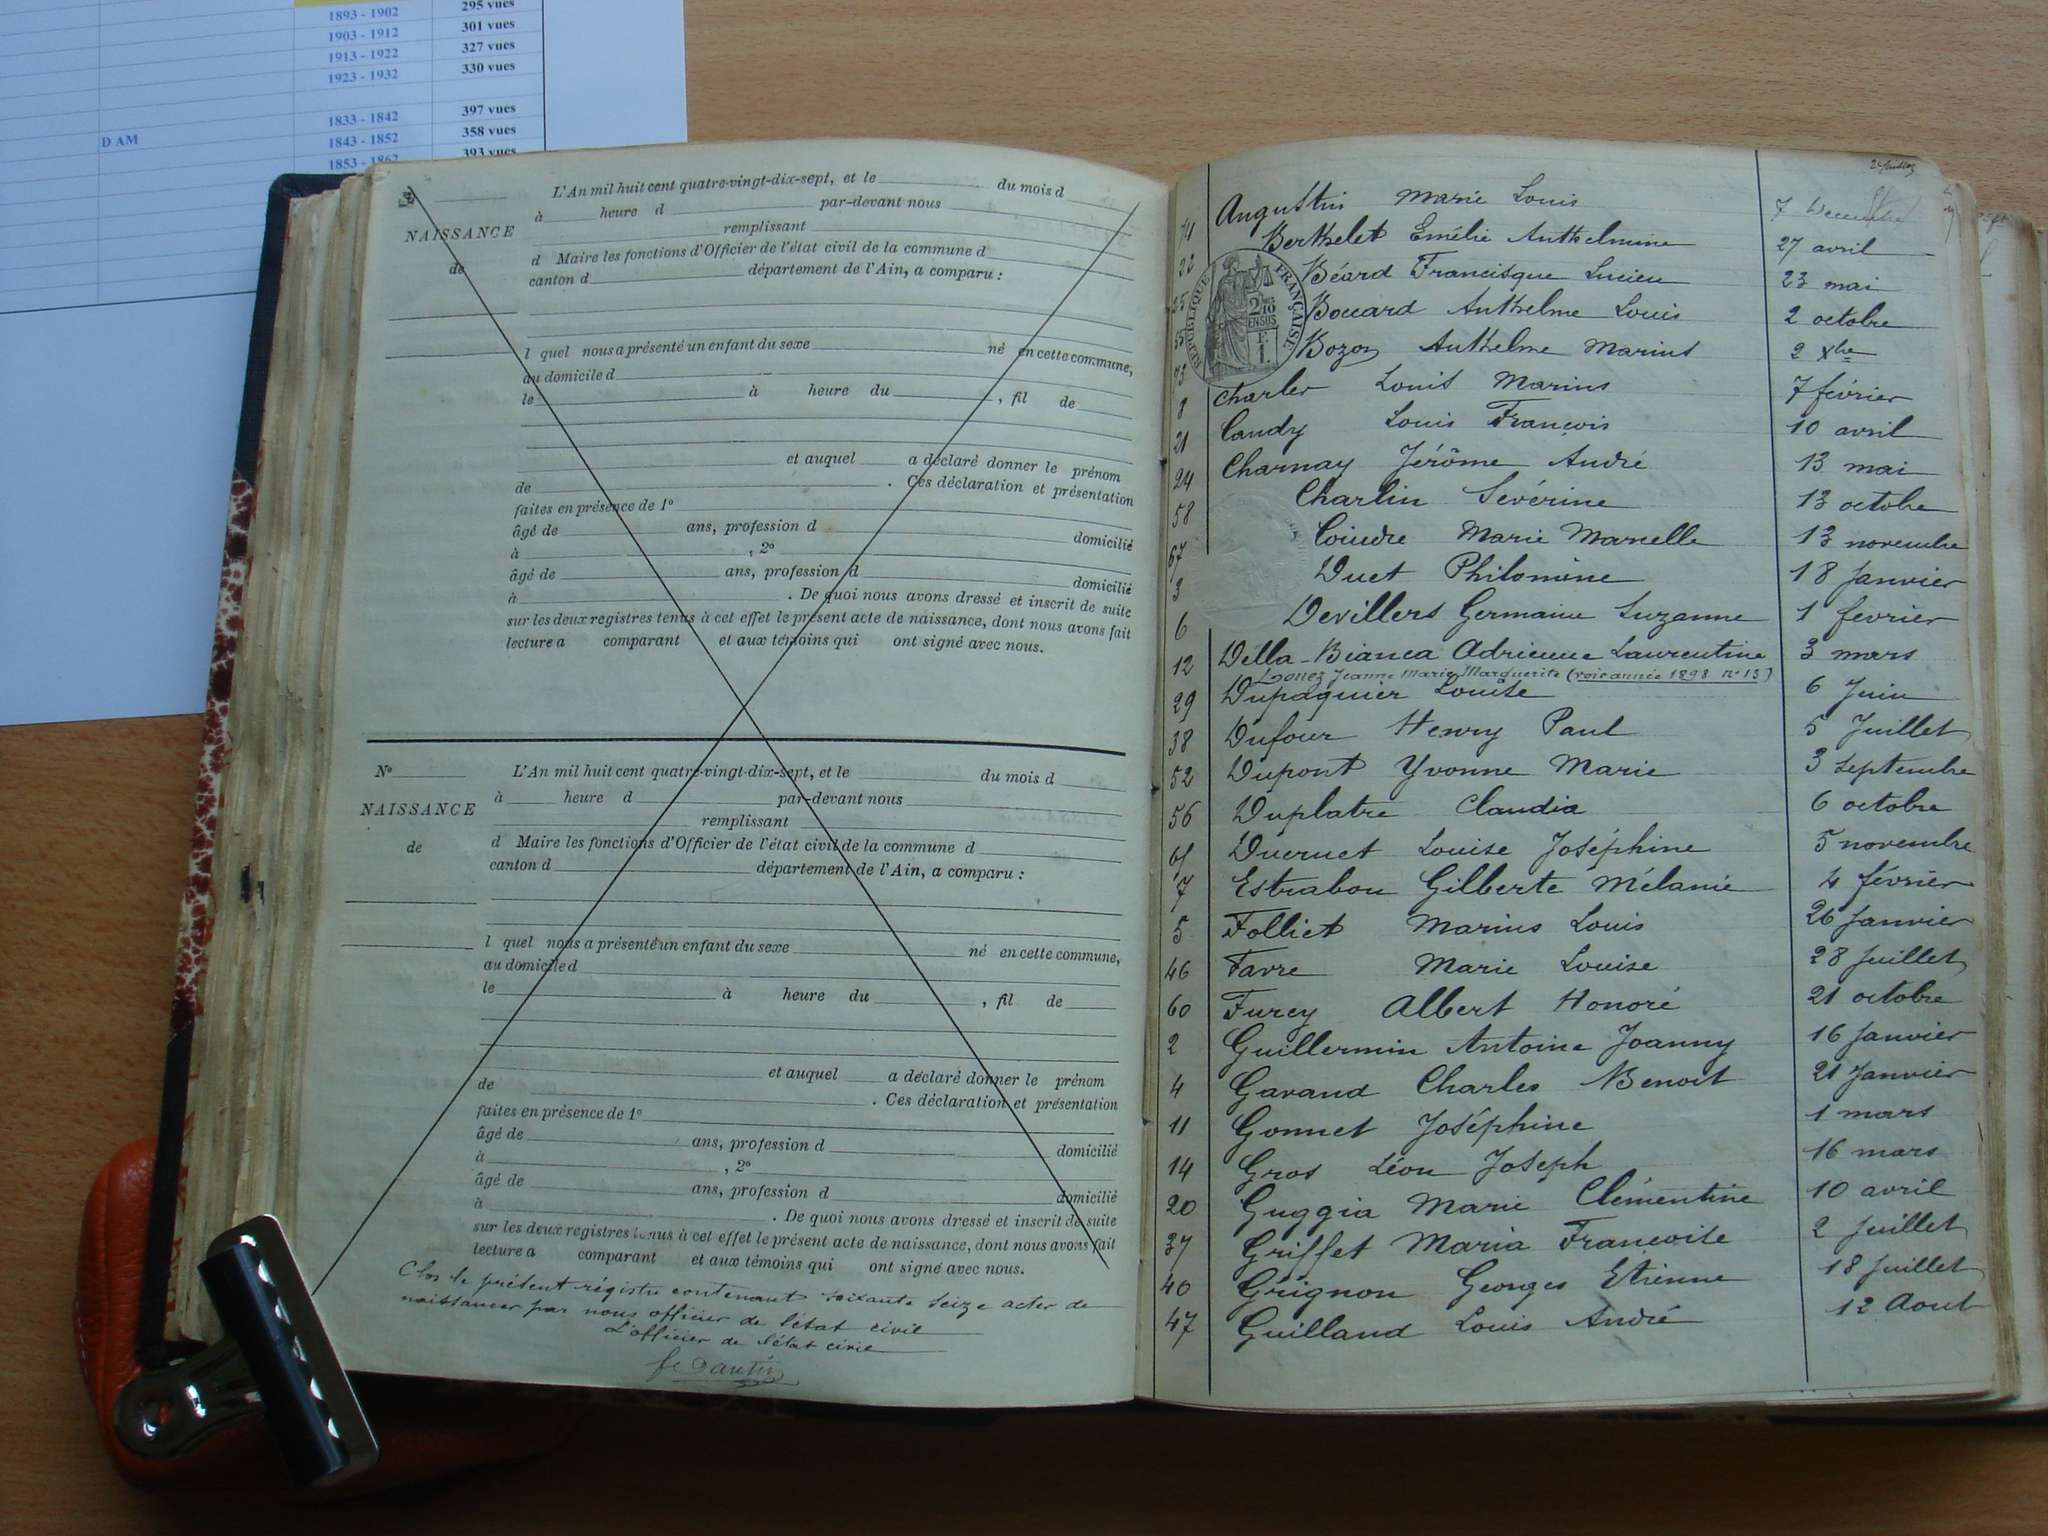 295 vues
1893 - 1902
301 vues
1903 - 1912
327 vues
1913 - 1922
330 vues
1923 - 1932
397 vues
1833 - 1842
D AM
358 vues
1843 - 1852
393 vues
1853 - 1862
L'An mil huit cent quatre-vingt-dix-sept, et le du mois d
à heure d par-devant nous
NAISSANCE
remplissant
de
d Maire les fonctions d'Officier de l'état civil de la commune d
canton d département de l'Ain, a comparu :
l quel nous a présenté un enfant du sexe né en cette commune,
au domicile d
le à heure du , fil de
et auquel a déclaré donner le prénom
de . Ces déclaration et présentation
faites en présence de 1º
âgé de ans, profession d domicilié
à , 2º
âgé de ans, profession d domicilié
à . De quoi nous avons dressé et inscrit de suite
sur les deux registres tenus à cet effet le présent acte de naissance, dont nous avons fait
lecture a comparant et aux témoins qui ont signé avec nous.
Nº L'An mil huit cent quatre-vingt-dix-sept, et le du mois d
NAISSANCE
à heure d par-devant nous
remplissant
de
d Maire les fonctions d'Officier de l'état civil de la commune d
canton d département de l'Ain, a comparu :
l quel nous a présenté un enfant du sexe né en cette commune,
au domicile d
le à heure du , fil de
et auquel a déclaré donner le prénom
de . Ces déclaration et présentation
faites en présence de 1º
âgé de ans, profession d domicilié
à , 2º
âgé de ans, profession d domicilié
à . De quoi nous avons dressé et inscrit de suite
sur les deux registres tenus à cet effet le présent acte de naissance, dont nous avons fait
lecture a comparant et aux témoins qui ont signé avec nous.
Clos le présent régistre contenant soixante seize actes de
naissances par nous officier de l'état civil
L'officier de l'état civil
Augustin Marie Louis 7 Decembre
Berthelet Emélie Anthelmine 27 avril
22 Béard Francisque Lucien 23 mai
RÉPUBLIQUE FRANÇAISE
2/10 EN SUS
F. 1.
Bouard Anthelme Louis 2 octobre
55 Bozon Anthelme Marius 2 Xbre
73 Charles Louis Marius 7 février
8 Candy Louis François 10 avril
21 Charnay Jérôme André 13 mai
24 Charlin Sévérine 13 octobre
58 Coindre Marie Marcelle 13 novembre
67 Duet Philomène 18 Janvier
3 Devillers Germaine Suzanne 1 fevrier
6 Della-Bianca Adrienne Laurentine 3 mars
12 Jeanne Marie Marguerite (voir année 1898 nº 13)
Dupaquier Louise 6 Juin
29 Dufour Henry Paul 5 Juillet
38 Dupont Yvonne Marie 3 Septembre
52 Duplatre Claudia 6 octobre
56 Ducruet Louise Joséphine 5 novembre
61 Estrabon Gilberte Mélanie 4 février
7 Folliet Marius Louis 26 Janvier
5 Favre Marie Louise 28 Juillet
46 Furcy Albert Honoré 21 octobre
60 Guillermin Antoine Joanny 16 Janvier
2 Gavand Charles Benoit 21 Janvier
4 Gonnet Joséphine 1 mars
11 Gros Léon Joseph 16 mars
14 Guggia Marie Clémentine 10 avril
20 Griffet Maria Francoise 2 Juillet
37 Grignon Georges Etienne 18 Juillet
40 Guilland Louis André 12 Aout
47